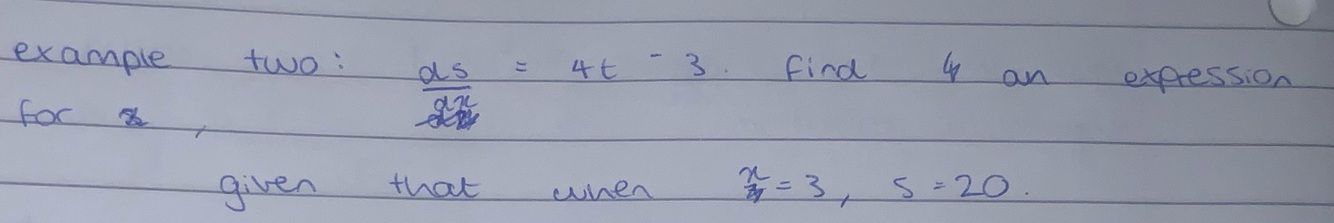 example two: ds/dx = 4t - 3. find an expression
for x,
given that when x = 3, s = 20.